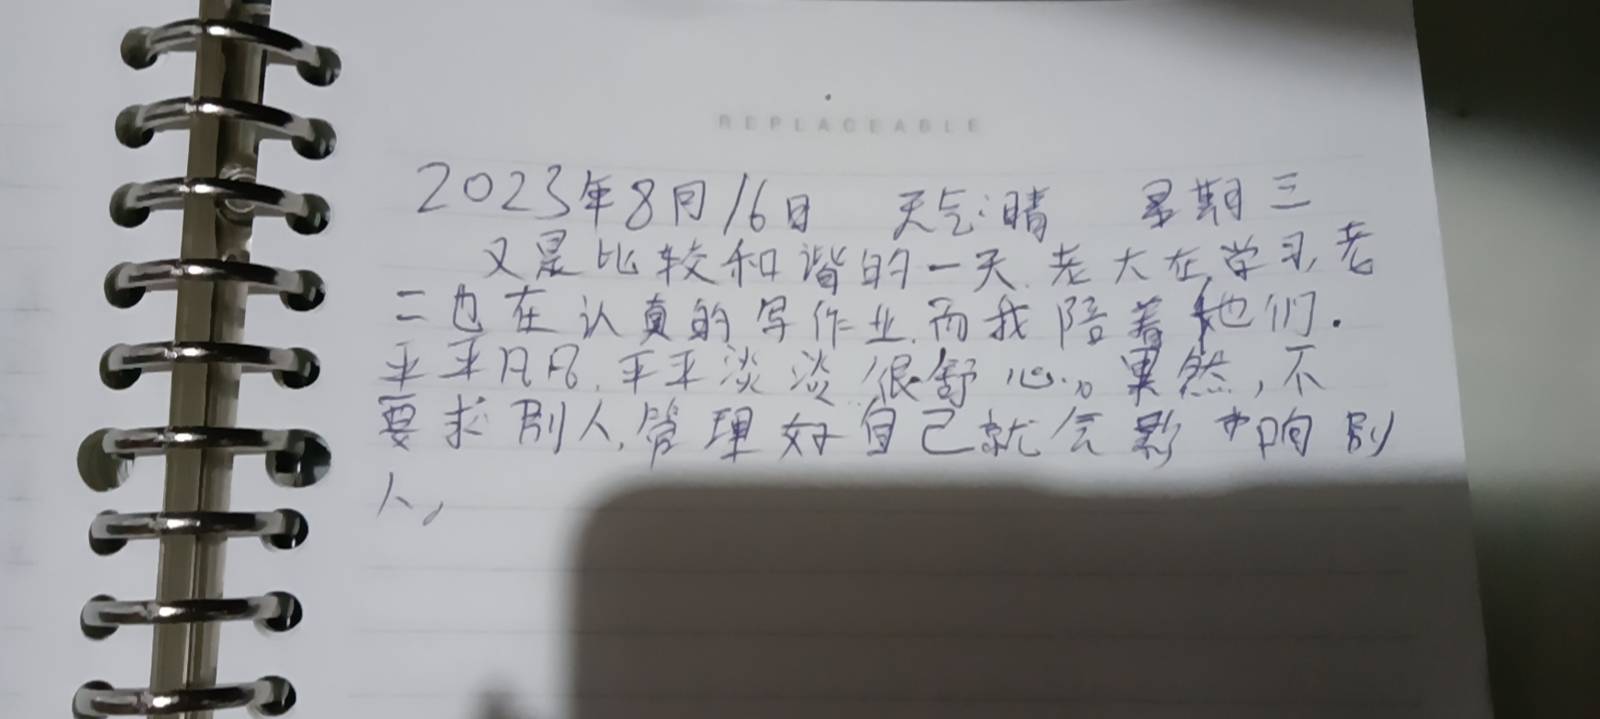 REPLACEABLE
2023年8月16日 天气:晴 星期三
又是比较和谐的一天.老大在学习,老
二也在认真的写作业,而我陪着他们.
平平凡凡,平平淡淡很舒心。果然,不
要求别人,管理好自己就会影响别
人,